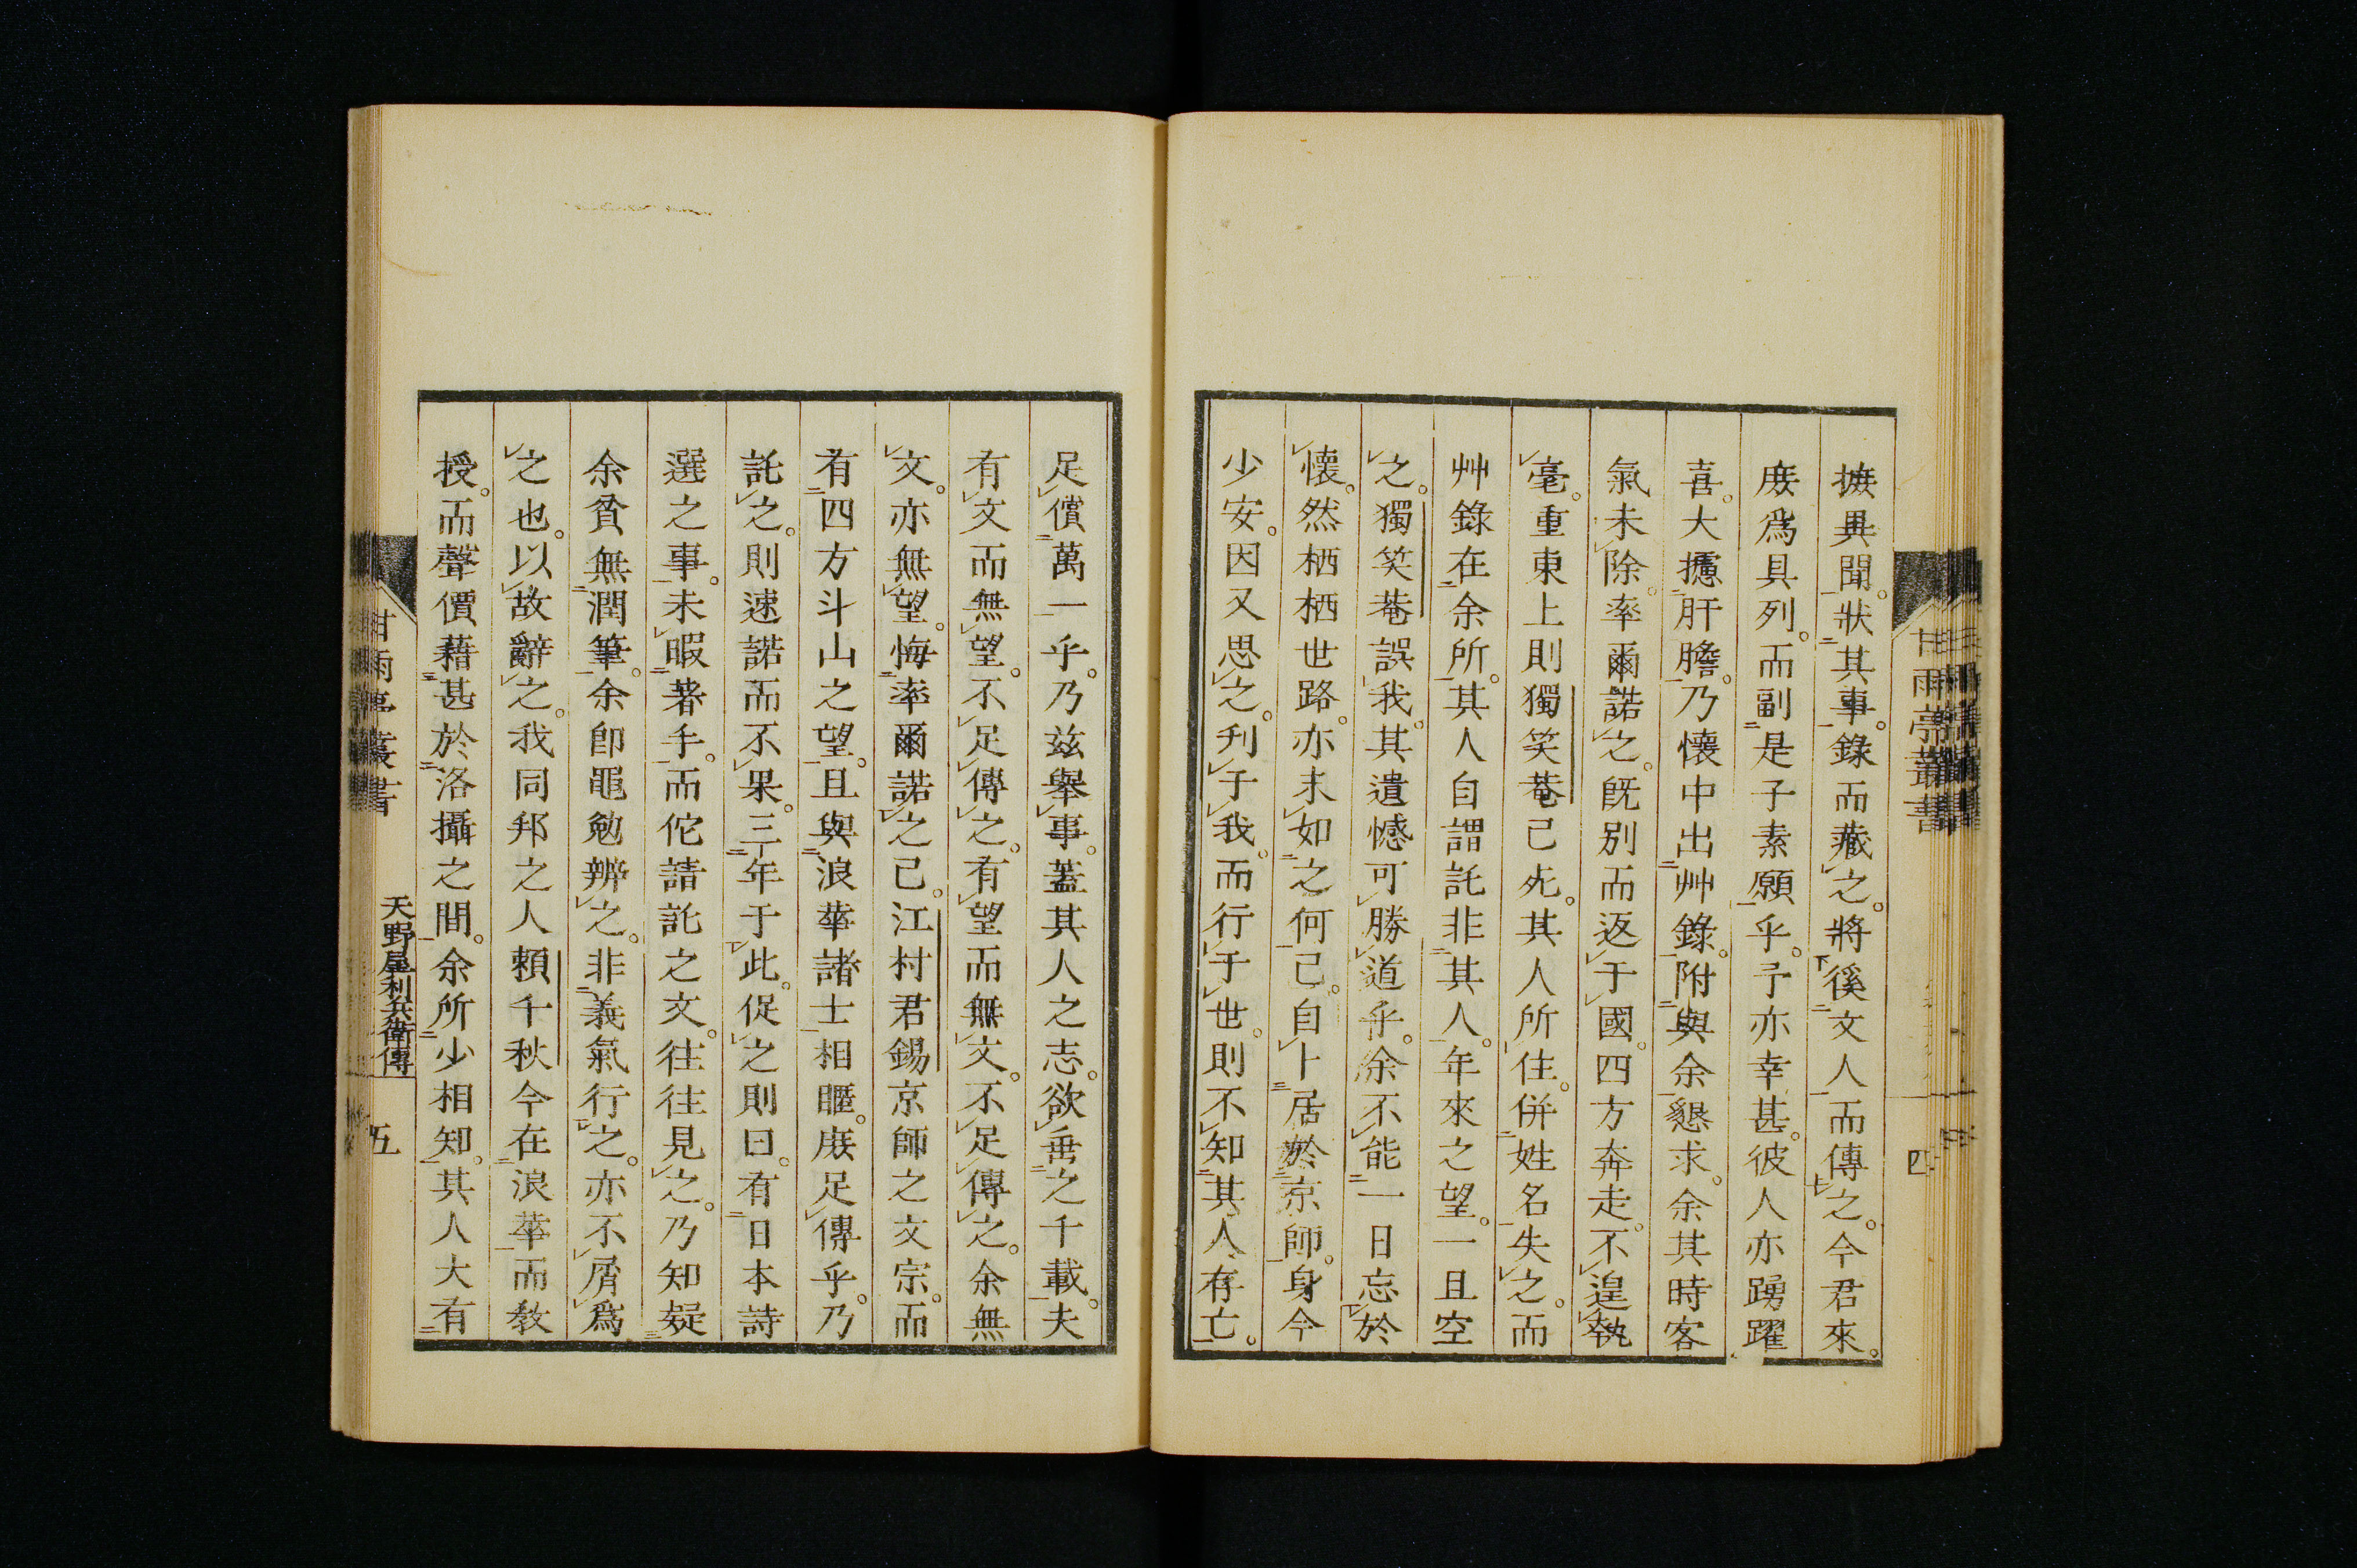 摭異聞。狀其事。錄而藏之。將徯文人而傳之。今君來。
庶爲具列。而副是子素願乎。予亦幸甚。彼人亦踴躍
喜。大攄肝膽。乃懷中出艸錄。附與余懇求。余其時客
氣未除。率爾諾之。旣別而返于國。四方奔走。不遑執
毫。重東上則獨笑菴已死。其人所住。併姓名失之。而
艸錄在余所。其人自謂託非其人。年來之望。一旦空
之。獨笑菴誤我。其遺憾可勝道乎。余不能一日忘於
懷。然栖栖世路。亦末如之何已。自卜居於京師。身今
少安。因又思之。利于我。而行于世。則不知其人存亡。
甘雨亭叢書
四
足償萬一乎。乃玆舉事。蓋其人之志。欲垂之千載。夫
有文而無望。不足傳之。有望而無文。不足傳之。余無
文。亦無望。悔率爾諾之已。江村君錫京師之文宗。而
有四方斗山之望。且與浪華諸士相暱。庶足傳乎。乃
託之。則速諾而不果。三年于此。促之則曰。有日本詩
選之事。未暇著手。而佗請託之文。往往見之。乃知疑
余貧無潤筆。余卽黽勉辨之。非義氣行之。亦不屑爲
之也。以故辭之。我同邦之人賴千秋今在浪華而教
授。而聲價藉甚於洛攝之間。余所少相知。其人大有
甘雨亭叢書
天野屋利兵衞傳
五